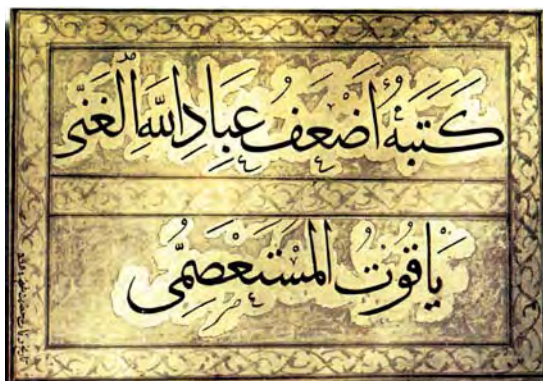 كَتَبَهُ أَضْعَفُ عِبَادِ اللهِ الْغَنِّى
يَاقُوتُ الْمُسْتَعْصِمِّى